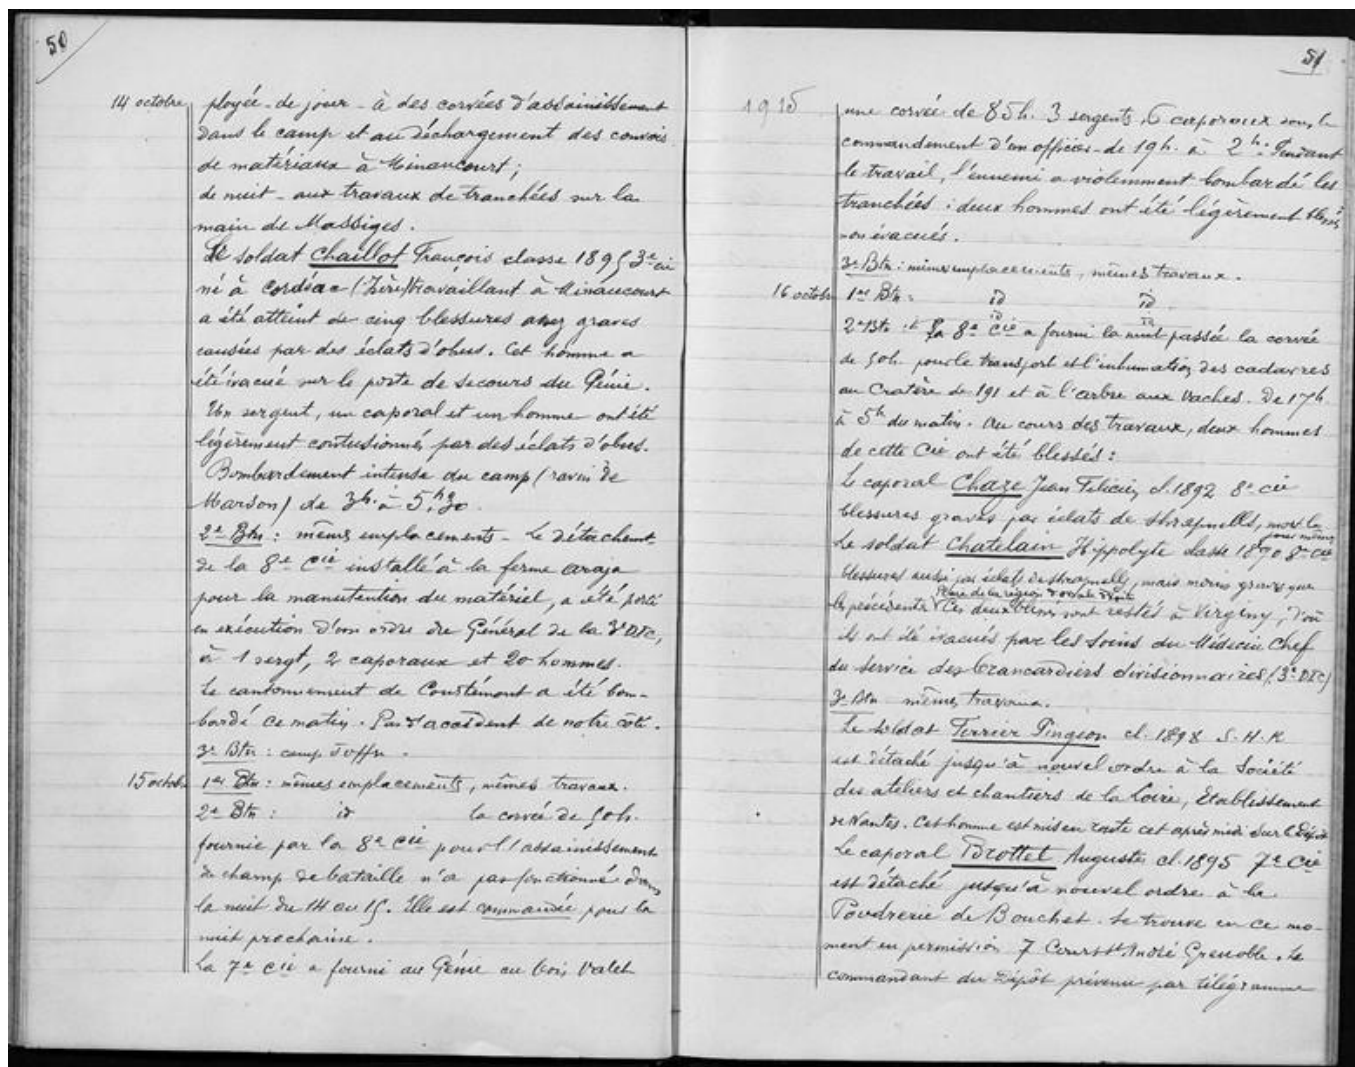 50
14 octobre ployée - de jour - à des corvées d'assainissement
dans le camp et au déchargement des convois
de matériaux à Minaucourt ;
de nuit - aux travaux de tranchées sur la
main de Massiges.
Le soldat Chaillot François classe 1895 3e Cie
né à Cordéac (Isère) travaillant à Minaucourt
a été atteint de cinq blessures assez graves
causées par des éclats d'obus. Cet homme a
été évacué sur le poste de secours du Génie.
Un sergent, un caporal et un homme ont été
légèrement contusionnés par des éclats d'obus.
Bombardement intense du camp (ravin de
Marson) de 3h. à 5h30.
2e Btn : mêmes emplacements - Le détachemt
de la 8e Cie installé à la ferme araja
pour la manutention du matériel, a été porté
en exécution d'un ordre du Général de la 3e DIC,
à 1 sergt, 2 caporaux et 20 hommes.
Le cantonnement de Courtémont a été bom-
bardé ce matin. Pas d'accident de notre côté.
3e Btn : camp Joffre.
15 octobre 1er Btn : mêmes emplacements, mêmes travaux.
2e Btn : id la corvée de 50h.
fournie par la 8e Cie pour l'assainissement
du champ de bataille n'a pas fonctionné dans
la nuit du 14 au 15. Elle est commandée pour la
nuit prochaine.
La 7e Cie a fourni au Génie au bois Valet
51
1915 une corvée de 85h. 3 sergents, 6 caporaux sous le
commandement d'un officier - de 19h. à 2h. Pendant
le travail, l'ennemi a violemment bombardé les
tranchées : deux hommes ont été légèrement blessés
non évacués.
3e Btn : mêmes emplacements, mêmes travaux.
16 octobre 1er Btn : id id
2e Btn : id id La 8e Cie a fourni la nuit passée la corvée
de 50h. pour le transport et l'inhumation des cadavres
au Cratère de 191 et à l'arbre aux vaches. De 17h.
à 5h du matin. Au cours des travaux, deux hommes
de cette Cie ont été blessés :
Le caporal Chaze Jean Félicien cl. 1892 8e Cie
blessures graves par éclats de shrapnells, mort le
jour même
Le soldat Chatelain Hippolyte classe 1890 8e Cie
blessures aussi par éclats de shrapnells, mais moins graves que
les précédentes Ces deux blessés sont restés à Virginy, d'où
ils ont été évacués par les soins du Médecin Chef
du service des brancardiers divisionnaires (3e DIC)
3e Btn mêmes travaux.
Le soldat Terrier Pingeon cl. 1898 S.H.R
est détaché jusqu'à nouvel ordre à la Société
des ateliers et chantiers de la Loire, Etablissement
de Nantes. Cet homme est mis en route cet après midi sur le Dépôt
Le caporal Brottet Auguste cl. 1895 7e Cie
est détaché jusqu'à nouvel ordre à la
Poudrerie de Bouchet. Se trouve en ce mo-
ment en permission 7 Cours St André Grenoble. Le
commandant du Dépôt prévenu par télégramme